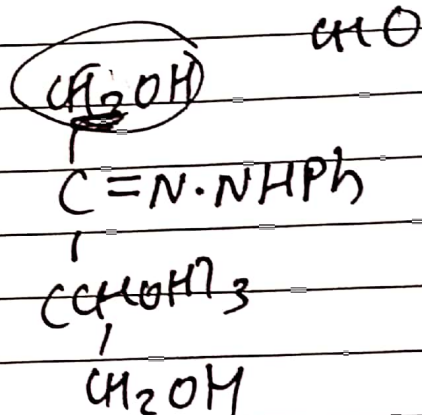 CHO
CH2OH
C=N·NHPh
(CHOH)3
CH2OH